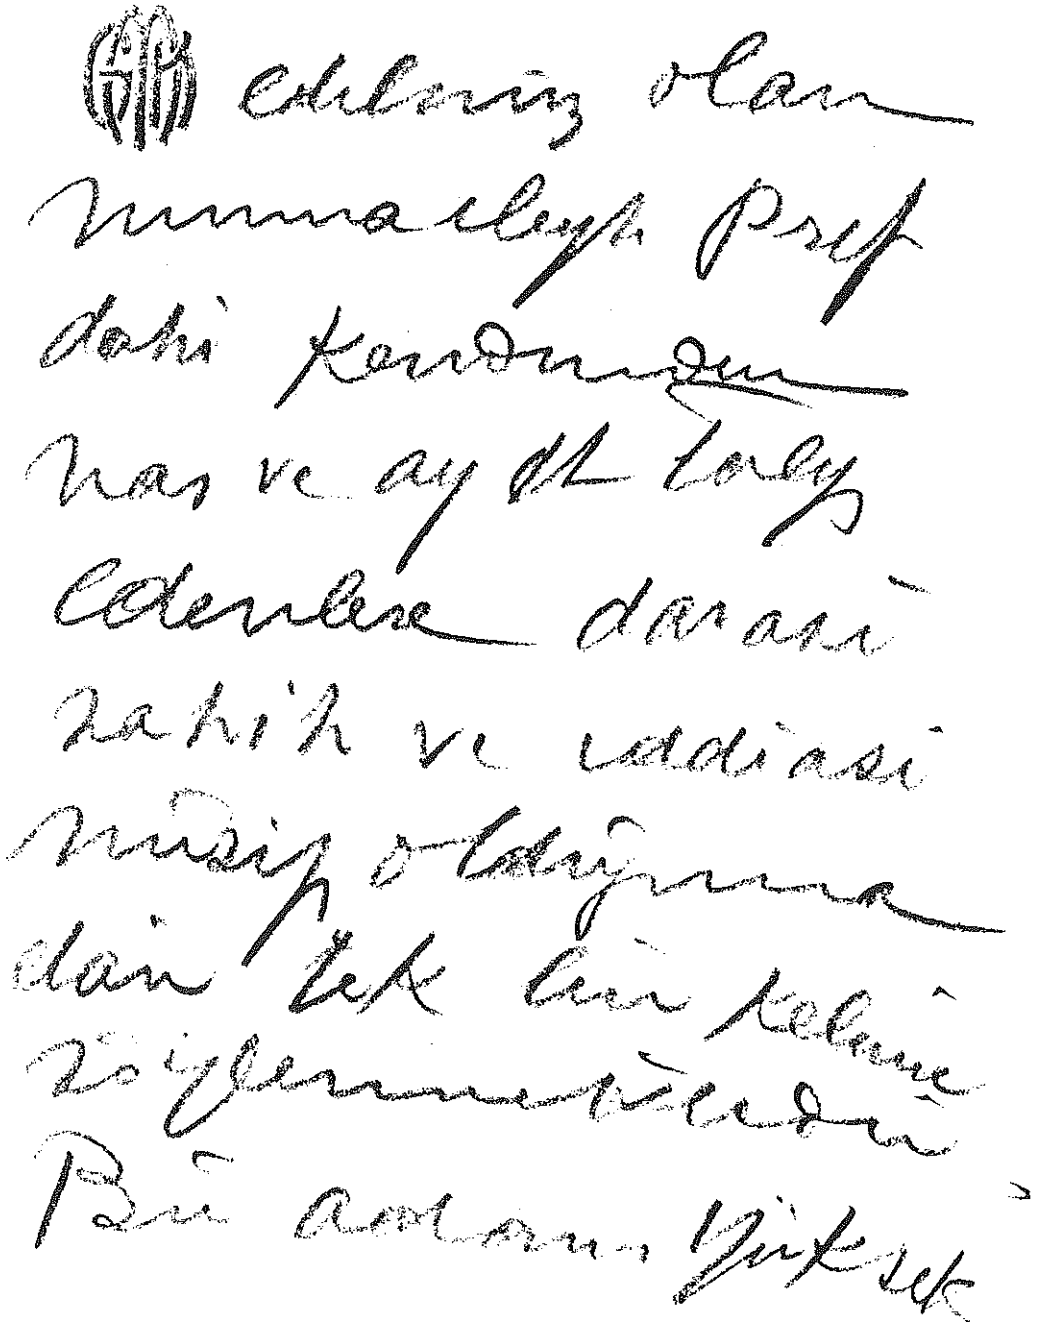 edilmiş olan
mumaileyh Pref
dahi kendinden
has ve aydt talep
edenlere darasi
sahih ve iddiasi
musip olduğuna
dair tek bir kelime
söylememişlerdir
Bu adam, yüksek